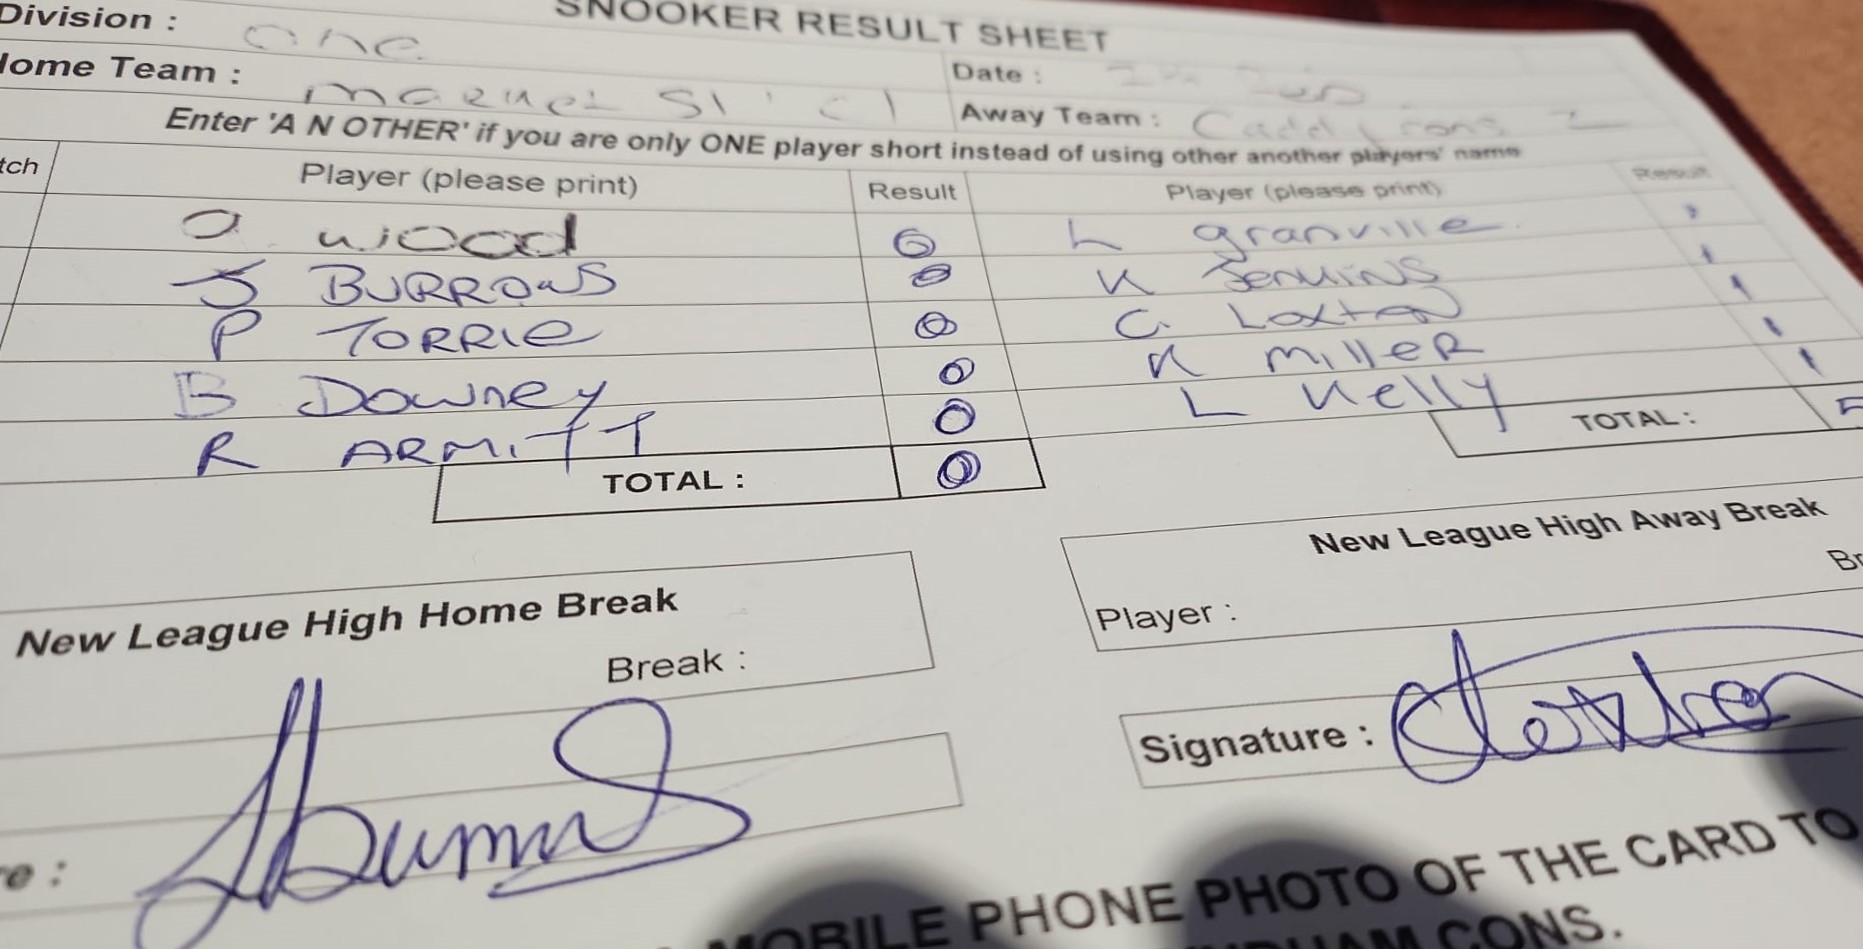 SNOOKER RESULT SHEET
Division : one
Home Team : St
Date :
Away Team : Cons 2
Enter 'A N OTHER' if you are only ONE player short instead of using other another players' name
tch Player (please print) Result Player (please print) Result
wood 0 L granville 1
J BURROWS 0 K Jenkins 1
P TORRIE 0 C. Loxton 1
B Downey 0 K miller 1
R ARMITT 0 L Kelly 1
TOTAL : 0 TOTAL : 5
New League High Home Break
Break :
New League High Away Break
Br
Player :
Signature :
e :
MOBILE PHONE PHOTO OF THE CARD TO
CONS.